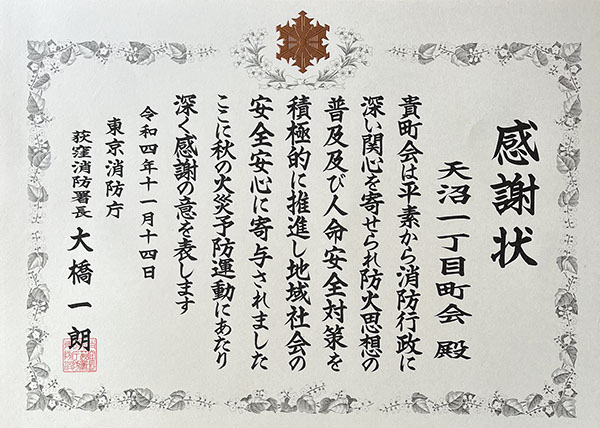 感謝状
天沼一丁目町会 殿
貴町会は平素から消防行政に
深い関心を寄せられ防火思想の
普及及び人命安全対策を
積極的に推進し地域社会の
安全安心に寄与されました
ここに秋の火災予防運動にあたり
深く感謝の意を表します
令和四年十一月十四日
東京消防庁
荻窪消防署長 大橋一朗